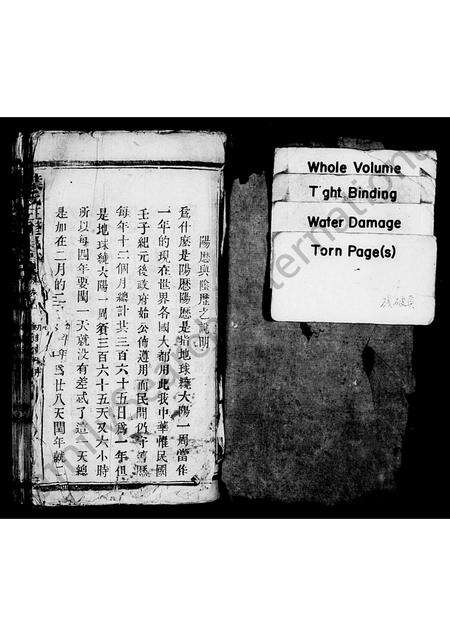 陽歷與陰歷之說明
爲什麼是陽歷陽歷是指地球繞太陽一周當作
一年的現在世界各國大都用此我中華惟民國
壬子紀元後政府始公佈遵用而民間仍守舊歷
每年十二個月總計共三百六十五日爲一年但
是地球繞太陽一周須三百六十五天又六小時
所以每四年要閏一天就没有差忒了這一天總
是加在二月的 年爲廿八天閏年就
Whole Volume
Tight Binding
Water Damage
Torn Page(s)